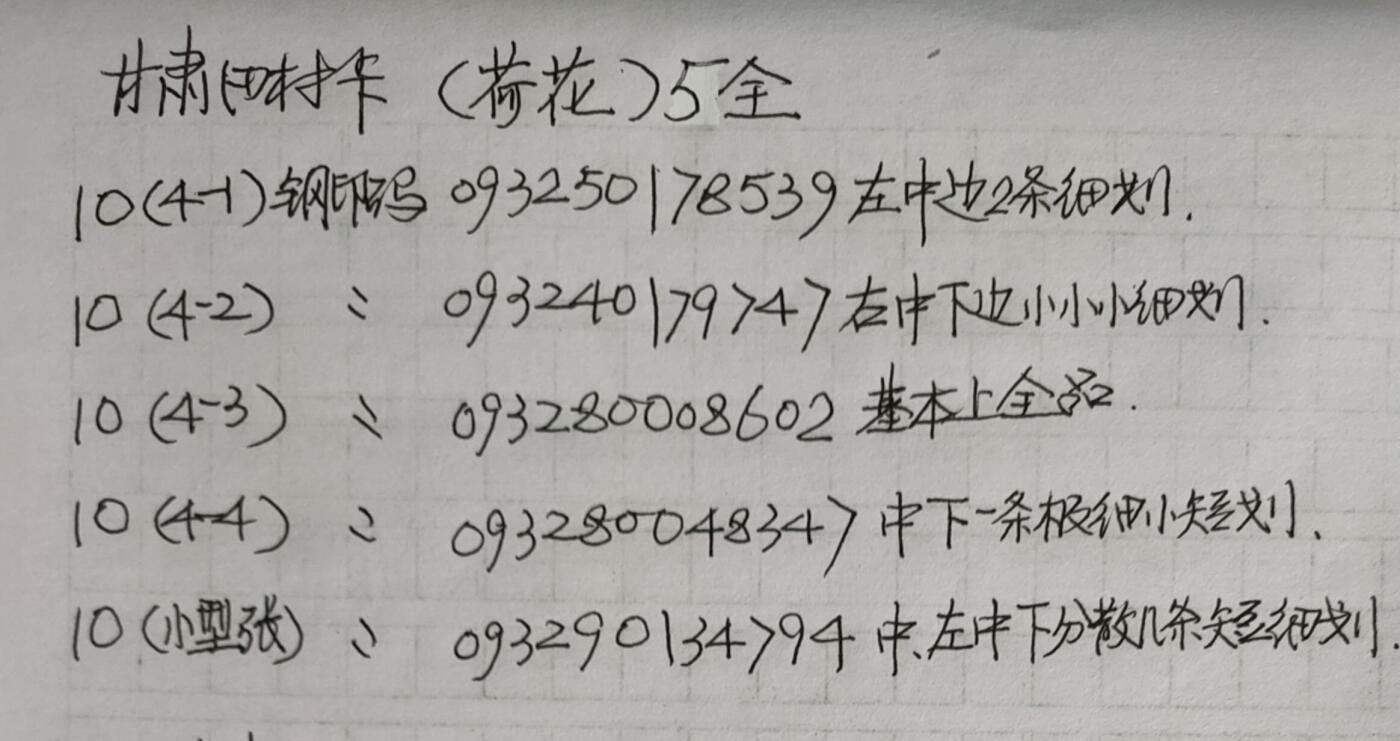 甘肃田村卡（荷花）5全
10(4-1)钢印码 093250178539 左中边2条细划.
10(4-2) 〃 093240179747 右中下边小小小细划.
10(4-3) 〃 093280008602 基本上全品.
10(4-4) 〃 093280048347 中下一条极细小短划.
10(小型张) 〃 093290134794 中、左中下分散几条短细划.